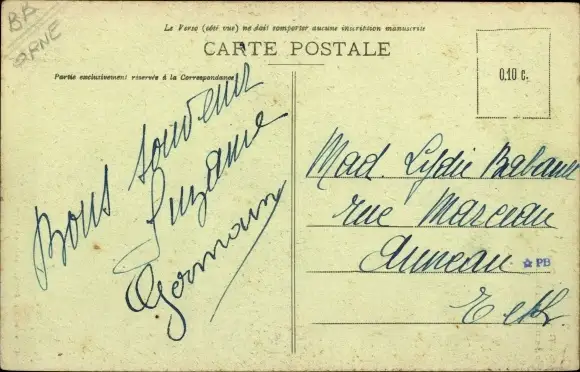 BB
ORNE
Le Verso (côté vue) ne doit comporter aucune inscription manuscrite
CARTE POSTALE
Partie exclusivement réservée à la Correspondance
0.10 c.
Bons souvenir
Suzanne
Germain
Mad. Lydie Babault
rue Marceau
Auneau
PB
E et L.